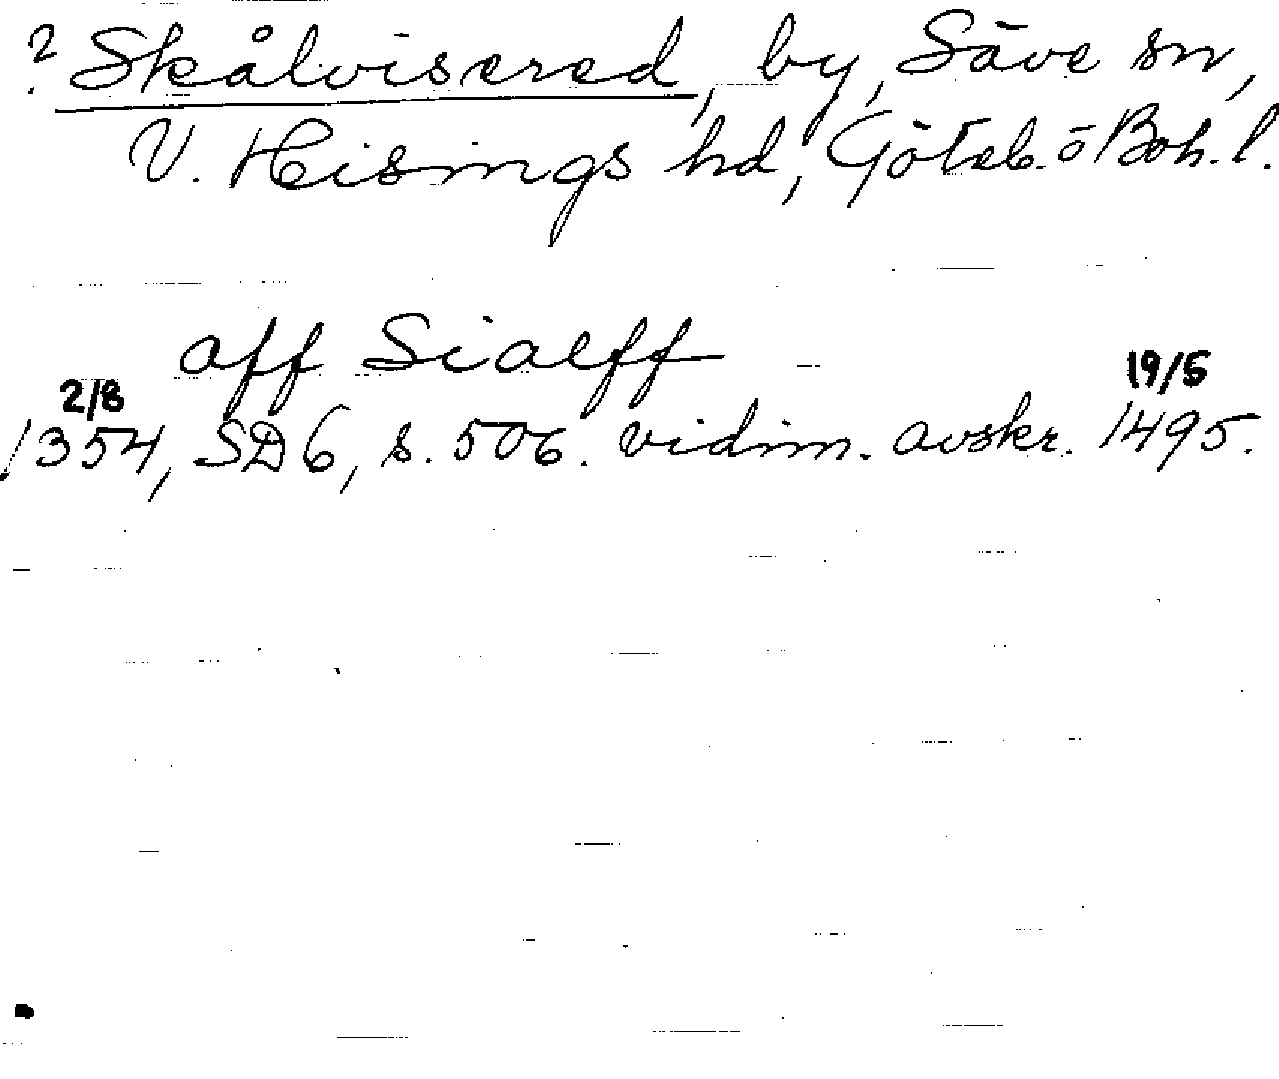 ? Skålvisered, by, Säve sn,
V. Hisings hd, Göteb. o Boh. l.
aff Sialeff
2/8 19/5
1354, SD 6, s. 506. vidim. avskr. 1495.